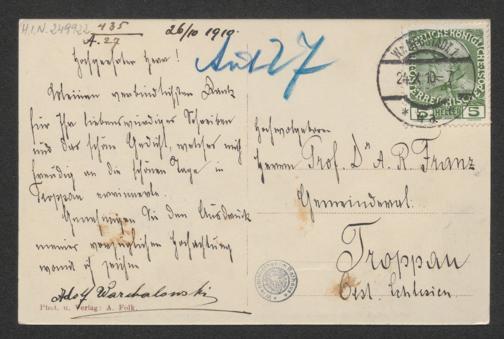 H.I.N. 249922
435
A. 27
26/10 1910.
A 27
WR. NEUSTADT
24.X.10
5 HELLER 5
Hochgeehrter Herr!
Meinen verbindlichsten Dank
für Ihr liebenswürdiges Schreiben
und das schöne Gedicht, welches mich
freudig an die schönen Tage in
Troppau erinnerte.
Genehmigen Sie den Ausdruck
meiner vorzüglichen Hochachtung
womit ich zeichne
Adolf Warchalowski
Phot. u. Verlag: A. Folk.
Hochwolgeboren
Herrn Prof. Dr A. R. Franz
Gemeinderat
Troppau
Öst. Schlesien.